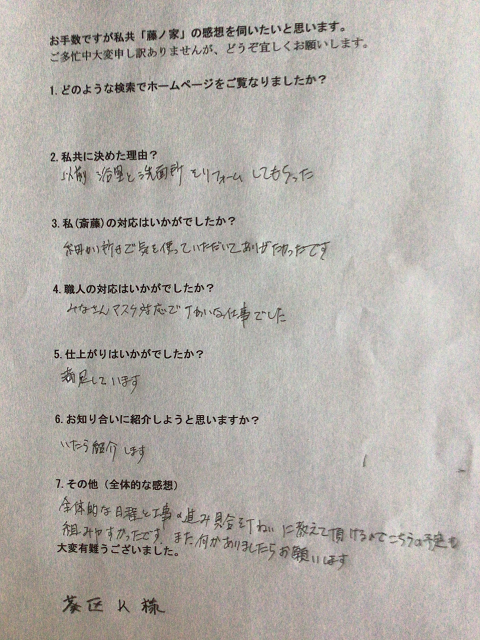 お手数ですが私共「藤ノ家」の感想を伺いたいと思います。
ご多忙中大変申し訳ありませんが、どうぞ宜しくお願いします。
1. どのような検索でホームページをご覧なりましたか?
2. 私共に決めた理由?
以前 浴室と洗面所をリフォームしてもらった
3. 私(斎藤)の対応はいかがでしたか?
細かい所まで気を使っていただいてありがたかったです
4. 職人の対応はいかがでしたか?
みなさんマスク対応でていねいな仕事でした
5. 仕上がりはいかがでしたか?
満足しています
6. お知り合いに紹介しようと思いますか?
いたら紹介します
7. その他(全体的な感想)
全体的な日程と工事の進み具合をていねいに教えて頂けるのでこちらの予定も
組みやすかったです。また何かありましたらお願いします
大変有難うございました。
葵区 K 様